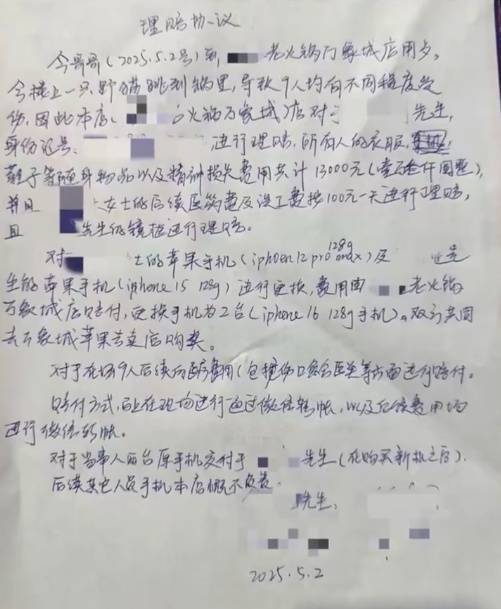 理赔协议
今哥哥(2025.5.2号)到 老火锅万象城店用歺,
今楼上一只野猫跳到锅里,导致9人均有不同程度受
伤,因此本店. 火锅万象城)店对于 先生,
身份证号. 进行理赔,所有人的衣服
鞋子等随身物品以及精神损失费用共计13000元(壹万叁仟圆整),
并且 女士的后续医药费及误工费按100元一天进行理赔,
且 先生的镜框进行理赔。
对 士的苹果手机(iphoen 12 pro max 128g)及 先
生的苹果手机(iphone 15 128g)进行更换,费用由 老火锅
万象城店赔付,更换手机为2台(iphone 16 128g手机)。双方共同
去万象城苹果专卖店购买。
对于在场9人后续的医疗费用(包括伤口 等方面进行赔付。
赔付方式,由在现场进行通过微信转帐,以及后续费用均
进行微信转帐。
对于当事人两台原手机交付于 先生(在购买新机之后).
后续其它人员手机本店概不负责.
先生.
2025.5.2